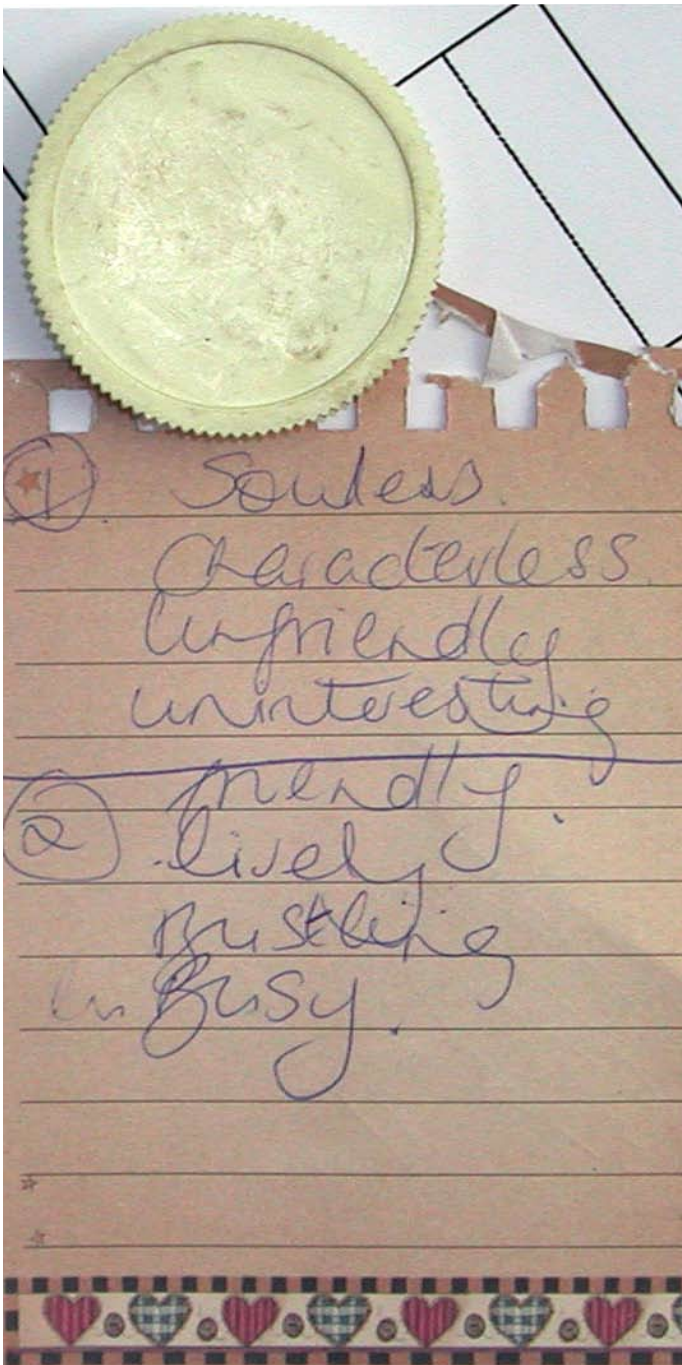 1 Souless.
Characterless.
Unfriendly
uninteresting
friendly.
2 lively
Bustling
Busy.